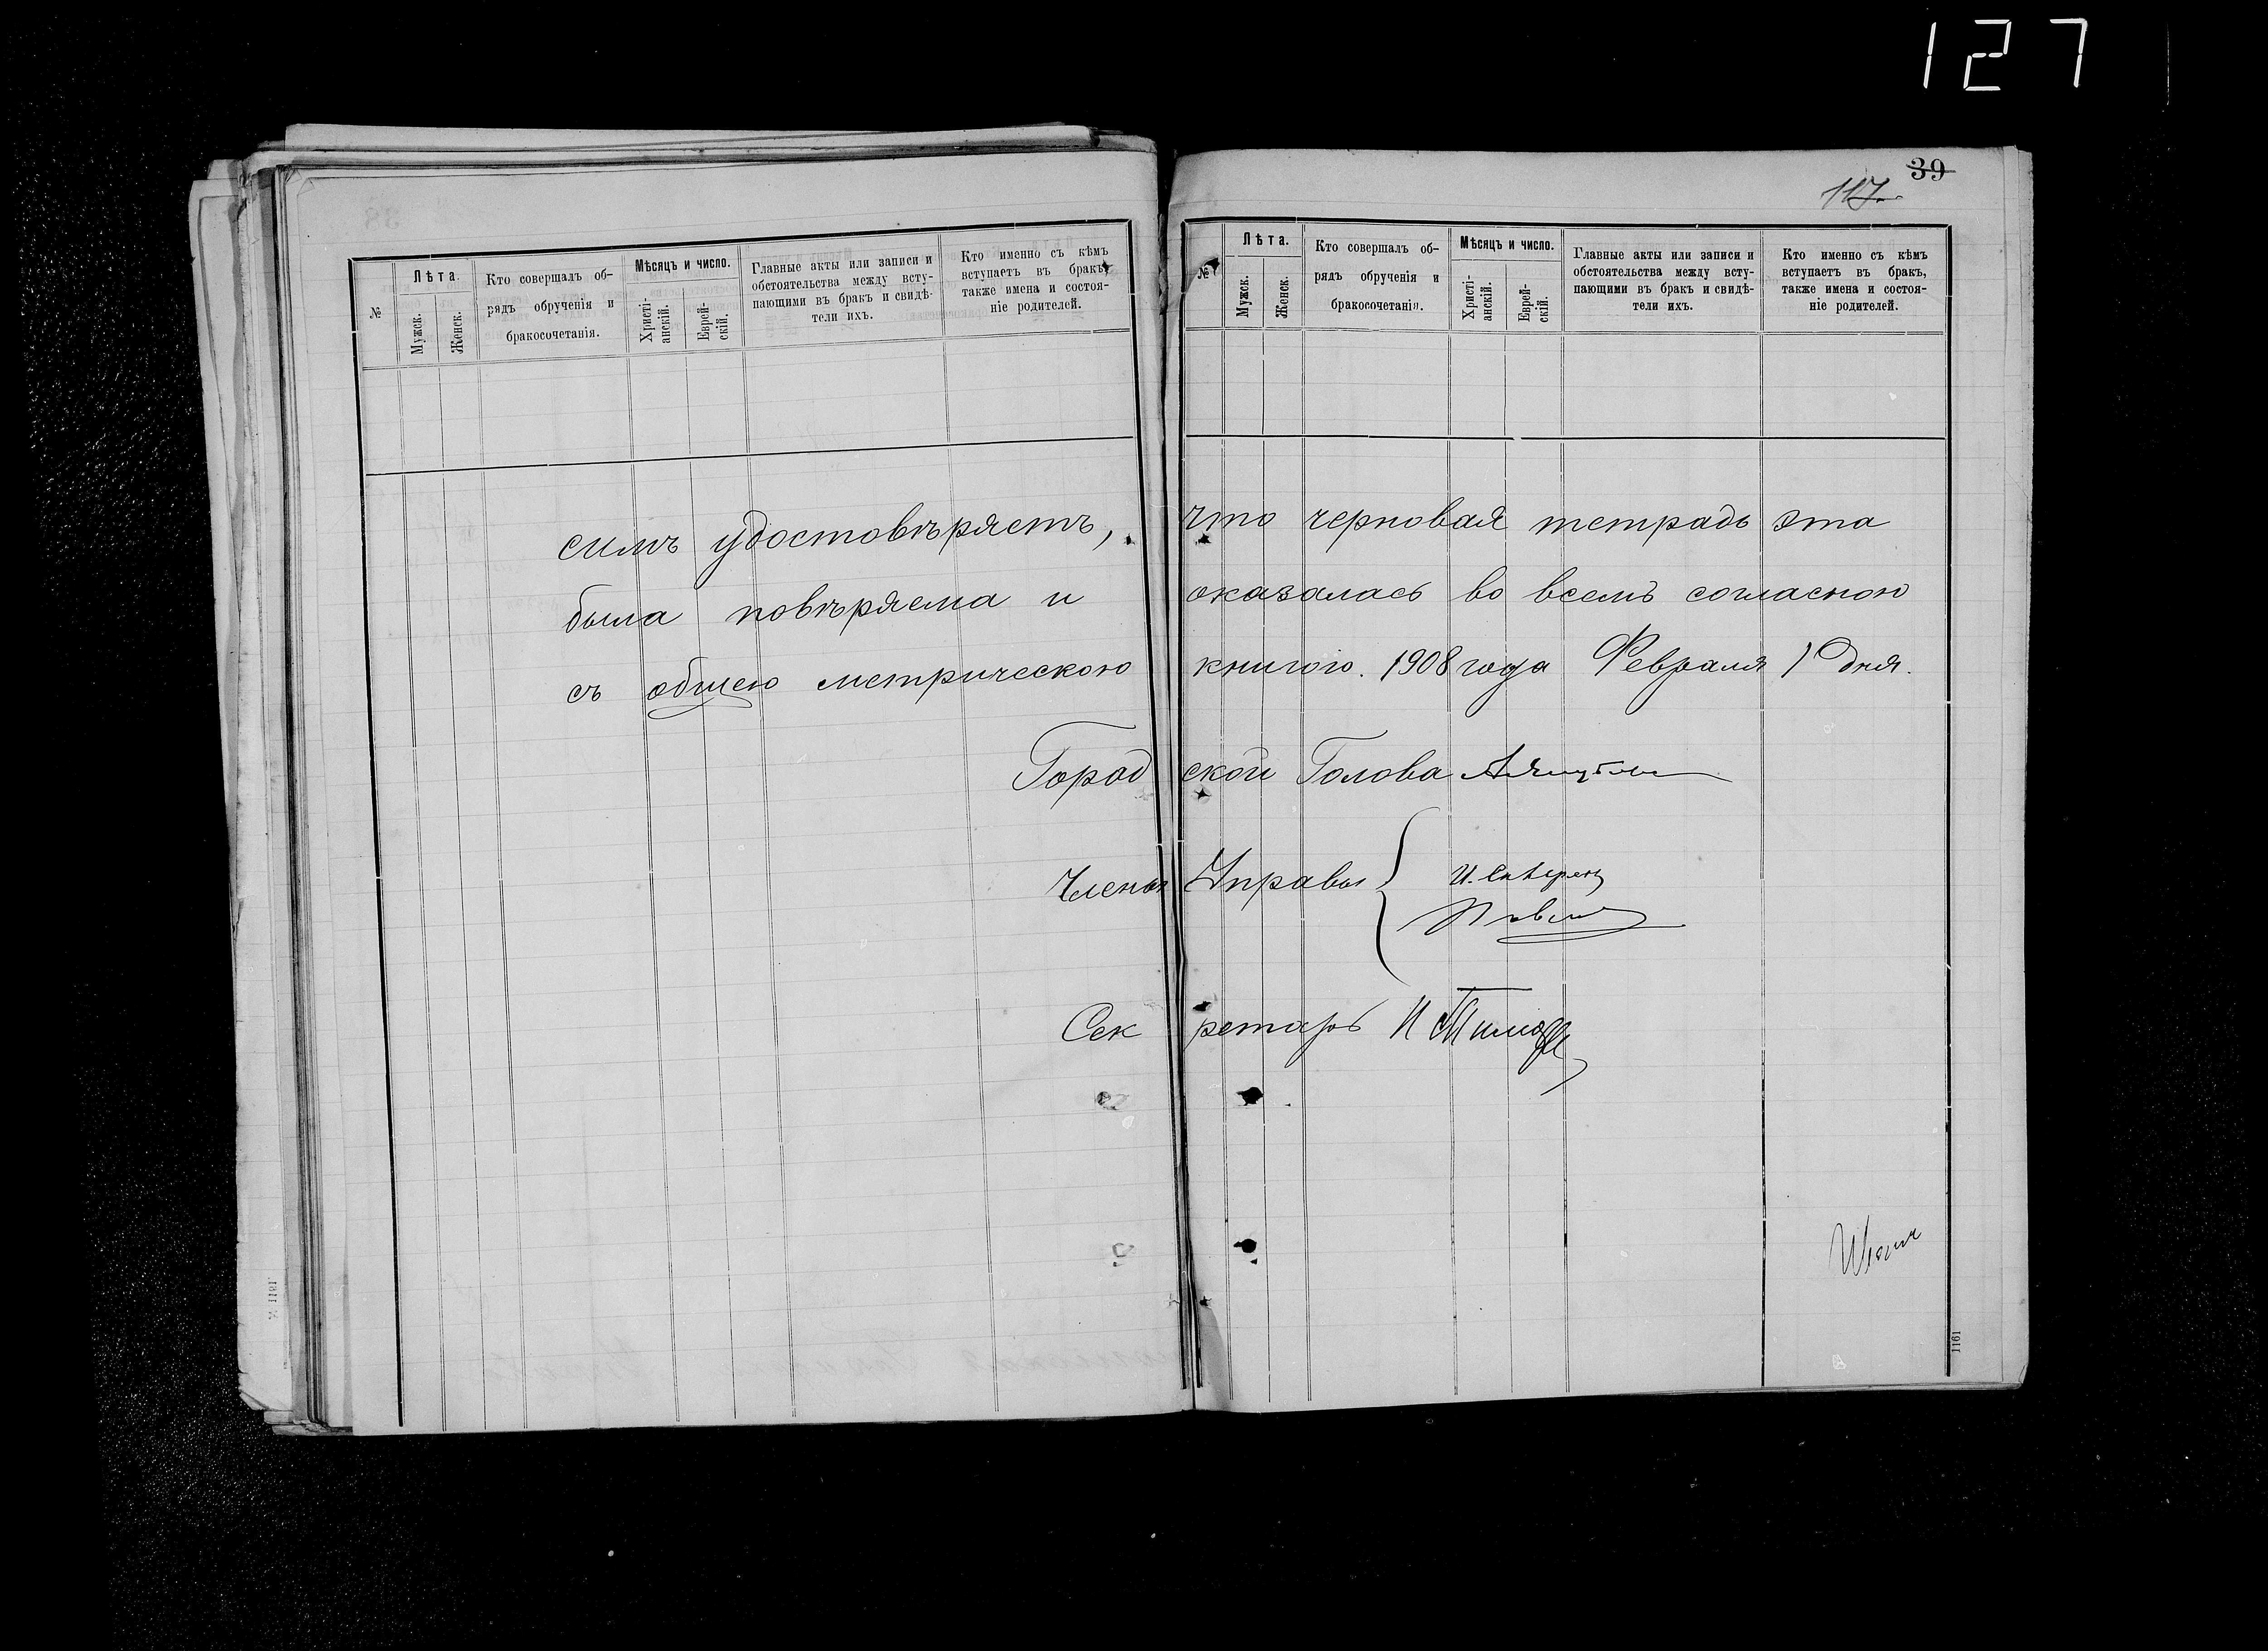 127
39
117
№
Лѣта.
Мужск.
Женск.
Кто совершалъ об-
рядъ обрученія и
бракосочетанія.
Мѣсяцъ и число.
Христі-
анскій.
Еврей-
скій.
Главные акты или записи и
обстоятельства между всту-
пающими въ бракъ и свидѣ-
тели ихъ.
Кто именно съ кѣмъ
вступаетъ въ бракъ,
также имена и состоя-
ніе родителей.
№
Лѣта.
Мужск.
Женск.
Кто совершалъ об-
рядъ обрученія и
бракосочетанія.
Мѣсяцъ и число.
Христі-
анскій.
Еврей-
скій.
Главные акты или записи и
обстоятельства между всту-
пающими въ бракъ и свидѣ-
тели ихъ.
Кто именно съ кѣмъ
вступаетъ въ бракъ,
также имена и состоя-
ніе родителей.
симъ удостовѣряетъ, что черновая тетрадь эта
была повѣряема и оказалась во всемъ согласною
съ общею метрическою книгою. 1908 года Февраля 1 дня.
Городской Голова
Члены Управы
Секретарь
1161